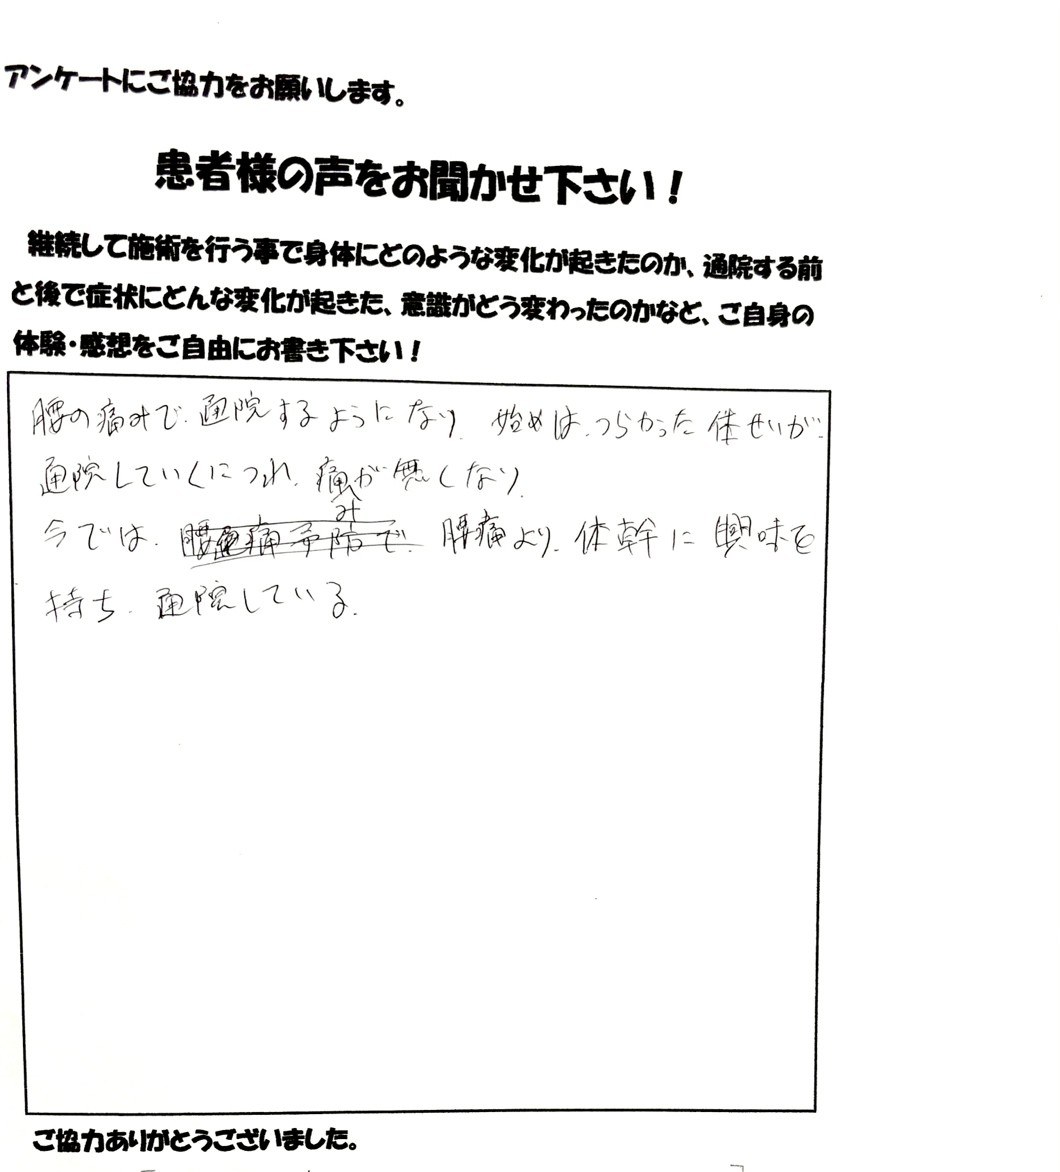 アンケートにご協力をお願いします。
患者様の声をお聞かせ下さい！
継続して施術を行う事で身体にどのような変化が起きたのか、通院する前
と後で症状にどんな変化が起きた、意識がどう変わったのかなど、ご自身の
体験・感想をご自由にお書き下さい！
腰の痛みで、通院するようになり、始めは、つらかった体せいが、
通院していくにつれ、痛みが無くなり、
今では、腰痛予防で、腰痛より、体幹に興味を
持ち、通院している。
ご協力ありがとうございました。